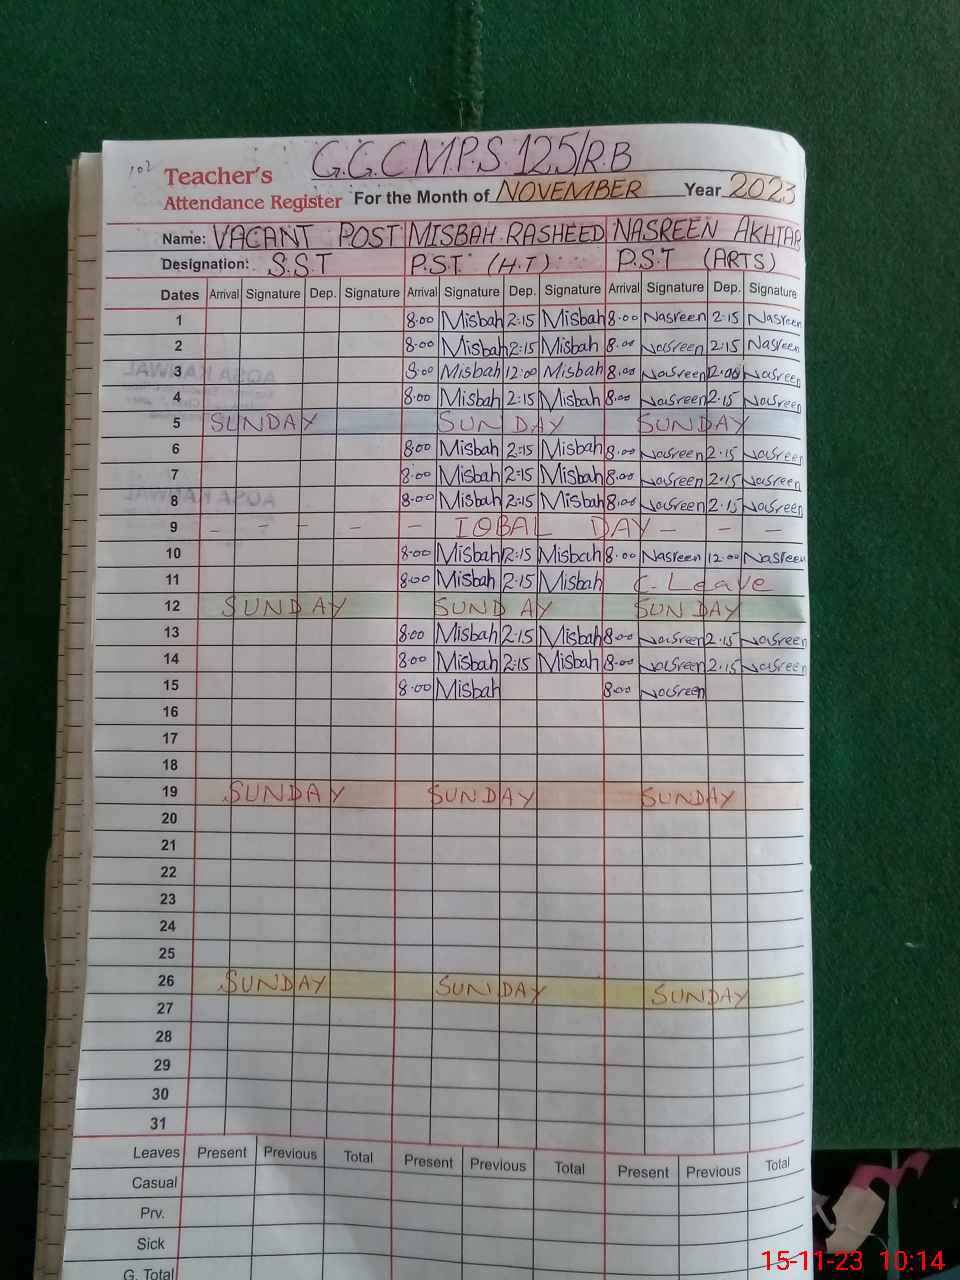 102
G.G.C M.P.S 125/R.B
Teacher's
Attendance Register For the Month of NOVEMBER Year 2023
Name: VACANT POST MISBAH RASHEED NASREEN AKHTAR
Designation: S.S.T P.S.T (H.T) P.S.T (ARTS)
Dates Arrival Signature Dep. Signature Arrival Signature Dep. Signature Arrival Signature Dep. Signature
1 8.00 Misbah 2:15 Misbah 8.00 Nasreen 2:15 Nasreen
2 8.00 Misbah 2:15 Misbah 8.00 Nasreen 2:15 Nasreen
3 8.00 Misbah 12:00 Misbah 8.00 Nasreen 12.00 Nasreen
4 8.00 Misbah 2:15 Misbah 8.00 Nasreen 2.15 Nasreen
5 SUNDAY SUNDAY SUNDAY
6 8.00 Misbah 2:15 Misbah 8.00 Nasreen 2.15 Nasreen
7 8.00 Misbah 2:15 Misbah 8.00 Nasreen 2.15 Nasreen
8 8.00 Misbah 2:15 Misbah 8.00 Nasreen 2.15 Nasreen
9 - - - - - IQBAL DAY - - -
10 8.00 Misbah 12:15 Misbah 8.00 Nasreen 12.00 Nasreen
11 8.00 Misbah 2:15 Misbah C.Leave
12 SUNDAY SUNDAY SUNDAY
13 8.00 Misbah 2:15 Misbah 8.00 Nasreen 2.15 Nasreen
14 8.00 Misbah 2:15 Misbah 8.00 Nasreen 2.15 Nasreen
15 8.00 Misbah 8.00 Nasreen
16
17
18
19 SUNDAY SUNDAY SUNDAY
20
21
22
23
24
25
26 SUNDAY SUNDAY SUNDAY
27
28
29
30
31
Leaves Present Previous Total Present Previous Total Present Previous Total
Casual
Prv.
Sick
G. Total
15-11-23 10:14